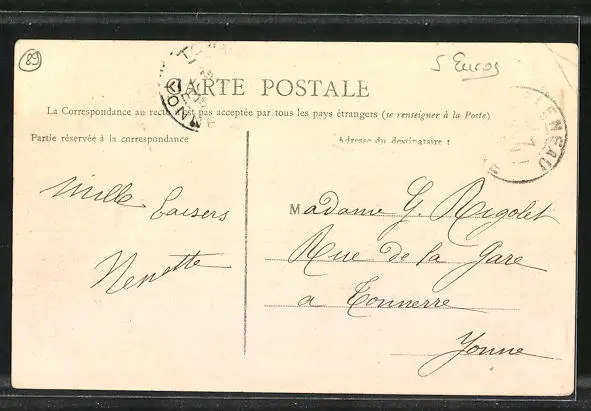 89
5 Euros
CARTE POSTALE
La Correspondance au recto n'est pas acceptée par tous les pays étrangers (se renseigner à la Poste)
Partie réservée à la correspondance
Adresse du destinataire :
LENEAU
Mille baisers
Nenette
Madame G. Rigolet
Rue de la Gare
a Tonnerre
Yonne